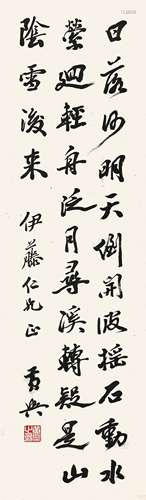 日落沙明天倒開波搖石動水
縈迴輕舟泛月尋溪轉疑是山
陰雪後来
伊藤仁兄正
黃興